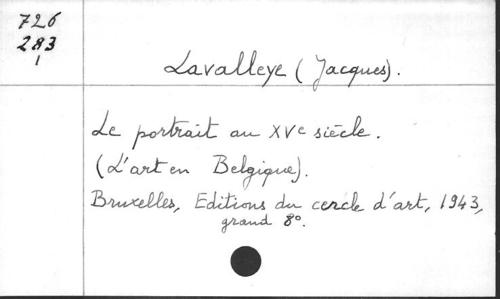 726
283
1
Lavalleye (Jacques).
Le portrait au XVe siècle.
(L'art en Belgique).
Bruxelles, Editions du cercle d'art, 1943,
grand 8°.